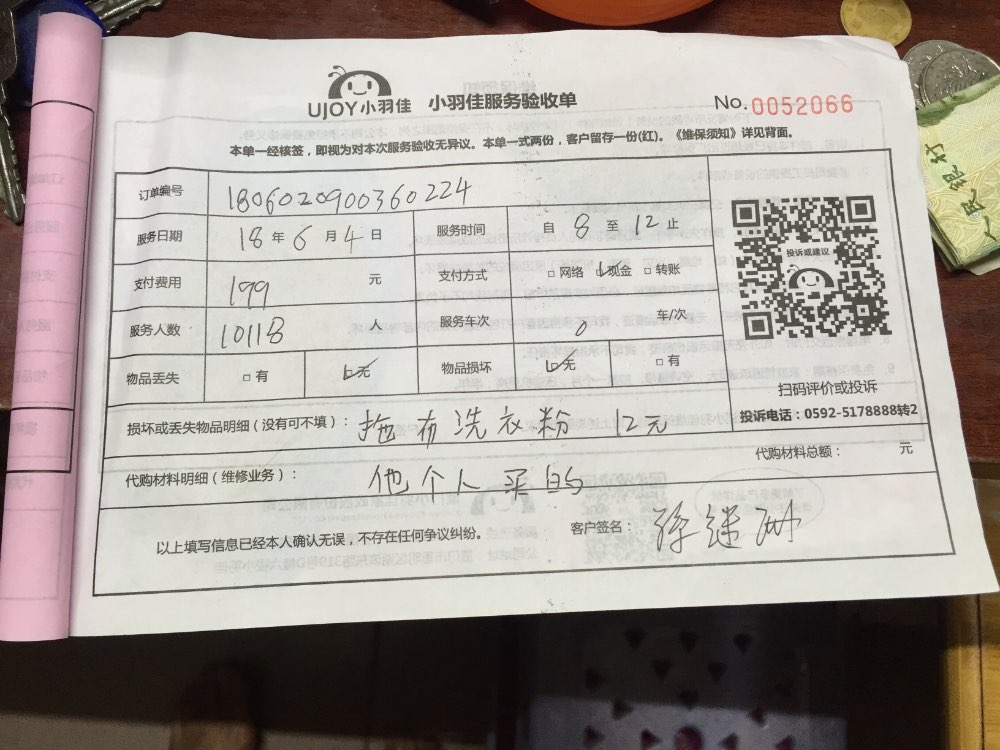 UJOY小羽佳 小羽佳服务验收单 No.0052066
本单一经核签，即视为对本次服务验收无异议。本单一式两份，客户留存一份(红)。《维保须知》详见背面。
订单编号 1806020900360224
服务日期 18年6月4日 服务时间 自8至12止
支付费用 199元 支付方式 □网络 ☑现金 □转账
服务人数 10118人 服务车次 0 车/次
物品丢失 □有 ☑无 物品损坏 ☑无 □有
投诉或建议
扫码评价或投诉
投诉电话：0592-5178888转2
损坏或丢失物品明细（没有可不填）：拖布洗衣粉 12元
代购材料明细（维修业务）：他个人买的 代购材料总额： 元
以上填写信息已经本人确认无误，不存在任何争议纠纷。 客户签名：
民银行